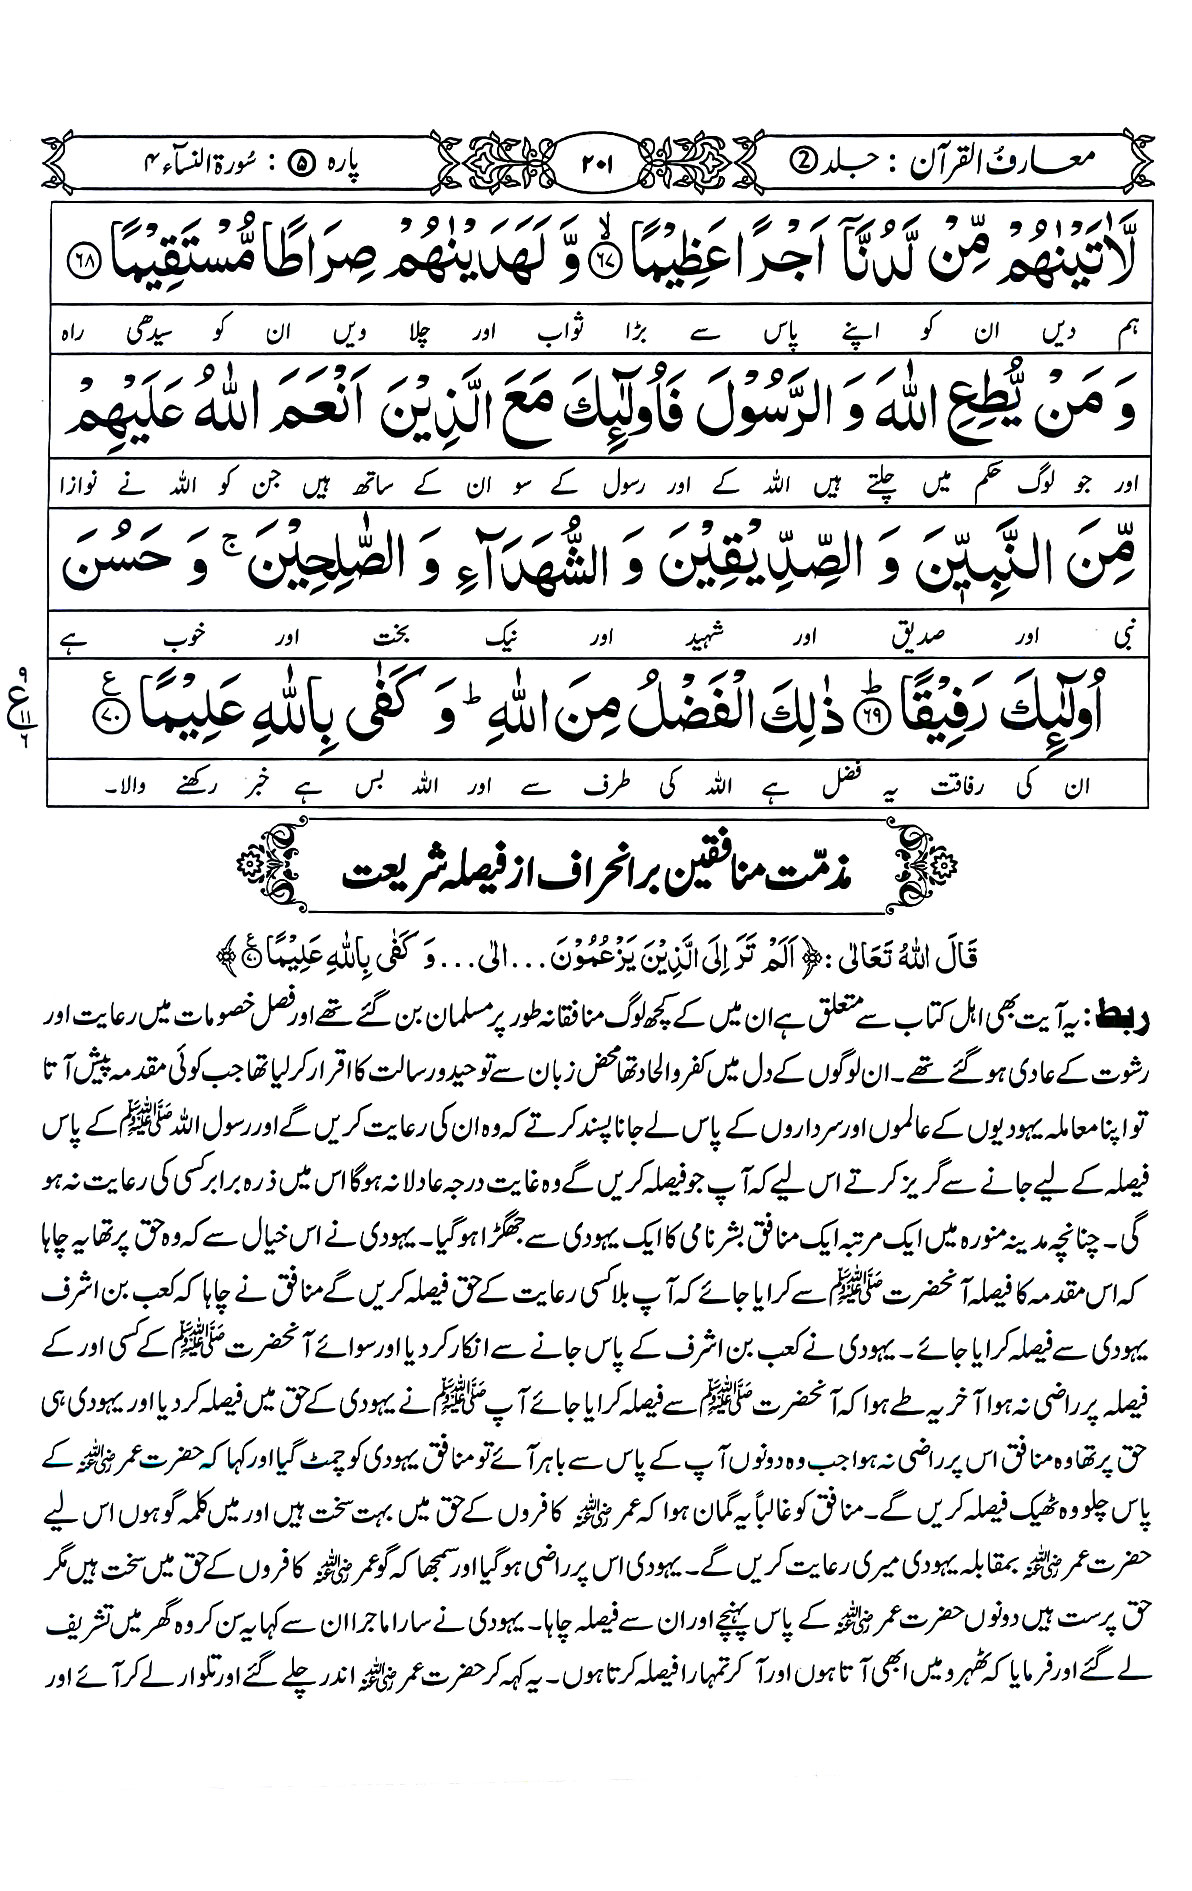 معارف القرآن : جلد 2
۲۰۱
پارہ ۵ : سُورۃ النسآء ۴
لَّاٰتَیْنٰهُمْ مِّنْ لَّدُنَّاۤ اَجْرًا عَظِیْمًا ۙ﴿۶۷﴾ وَّ لَهَدَیْنٰهُمْ صِرَاطًا مُّسْتَقِیْمًا ﴿۶۸﴾
ہم دیں ان کو اپنے پاس سے بڑا ثواب اور چلا ویں ان کو سیدھی راہ
وَ مَنْ یُّطِعِ اللّٰهَ وَ الرَّسُوْلَ فَاُولٰٓئِكَ مَعَ الَّذِیْنَ اَنْعَمَ اللّٰهُ عَلَیْهِمْ
اور جو لوگ حکم میں چلتے ہیں اللہ کے اور رسول کے سو ان کے ساتھ ہیں جن کو اللہ نے نوازا
مِّنَ النَّبِیّٖنَ وَ الصِّدِّیْقِیْنَ وَ الشُّهَدَآءِ وَ الصّٰلِحِیْنَ ۚ وَ حَسُنَ
نبی اور صدیق اور شہید اور نیک بخت اور خوب ہے
اُولٰٓئِكَ رَفِیْقًا ؕ﴿۶۹﴾ ذٰلِكَ الْفَضْلُ مِنَ اللّٰهِ ؕ وَ كَفٰی بِاللّٰهِ عَلِیْمًا ﴿۷۰﴾ع
۹
ع
۱۱
۶
ان کی رفاقت یہ فضل ہے اللہ کی طرف سے اور اللہ بس ہے خبر رکھنے والا۔
مذمّت منافقین بر انحراف از فیصلہ شریعت
قَالَ اللّٰهُ تَعَالٰی : ﴿اَلَمْ تَرَ اِلَی الَّذِیْنَ یَزْعُمُوْنَ ... الٰی ... وَ كَفٰی بِاللّٰهِ عَلِیْمًا ۷۰ع﴾
ربط: یہ آیت بھی اہل کتاب سے متعلق ہے ان میں کے کچھ لوگ منافقانہ طور پر مسلمان بن گئے تھے اور فصل خصومات میں رعایت اور
رشوت کے عادی ہوگئے تھے۔ ان لوگوں کے دل میں کفر والحاد تھا محض زبان سے توحید ورسالت کا اقرار کرلیا تھا جب کوئی مقدمہ پیش آتا
تو اپنا معاملہ یہودیوں کے عالموں اور سرداروں کے پاس لے جانا پسند کرتے کہ وہ ان کی رعایت کریں گے اور رسول اللہ ﷺ کے پاس
فیصلہ کے لیے جانے سے گریز کرتے اس لیے کہ آپ جو فیصلہ کریں گے وہ غایت درجہ عادلانہ ہوگا اس میں ذرہ برابر کسی کی رعایت نہ ہو
گی۔ چنانچہ مدینہ منورہ میں ایک مرتبہ ایک منافق بشر نامی کا ایک یہودی سے جھگڑا ہوگیا۔ یہودی نے اس خیال سے کہ وہ حق پر تھا یہ چاہا
کہ اس مقدمہ کا فیصلہ آنحضرت ﷺ سے کرایا جائے کہ آپ بلا کسی رعایت کے حق فیصلہ کریں گے منافق نے چاہا کہ کعب بن اشرف
یہودی سے فیصلہ کرایا جائے۔ یہودی نے کعب بن اشرف کے پاس جانے سے انکار کردیا اور سوائے آنحضرت ﷺ کے کسی اور کے
فیصلہ پر راضی نہ ہوا آخر یہ طے ہوا کہ آنحضرت ﷺ سے فیصلہ کرایا جائے آپ ﷺ نے یہودی کے حق میں فیصلہ کردیا اور یہودی ہی
حق پر تھا وہ منافق اس پر راضی نہ ہوا جب وہ دونوں آپ کے پاس سے باہر آئے تو منافق یہودی کو چمٹ گیا اور کہا کہ حضرت عمر رضی اللہ عنہ کے
پاس چلو وہ ٹھیک فیصلہ کریں گے۔ منافق کو غالباً یہ گمان ہوا کہ عمر رضی اللہ عنہ کافروں کے حق میں بہت سخت ہیں اور میں کلمہ گو ہوں اس لیے
حضرت عمر رضی اللہ عنہ بمقابلہ یہودی میری رعایت کریں گے۔ یہودی اس پر راضی ہوگیا اور سمجھا کہ گو عمر رضی اللہ عنہ کافروں کے حق میں سخت ہیں مگر
حق پرست ہیں دونوں حضرت عمر رضی اللہ عنہ کے پاس پہنچے اور ان سے فیصلہ چاہا۔ یہودی نے سارا ماجرا ان سے کہا یہ سن کر وہ گھر میں تشریف
لے گئے اور فرمایا کہ ٹھہرو میں ابھی آتا ہوں اور آکر تمہارا فیصلہ کرتا ہوں۔ یہ کہہ کر حضرت عمر رضی اللہ عنہ اندر چلے گئے اور تلوار لے کر آئے اور